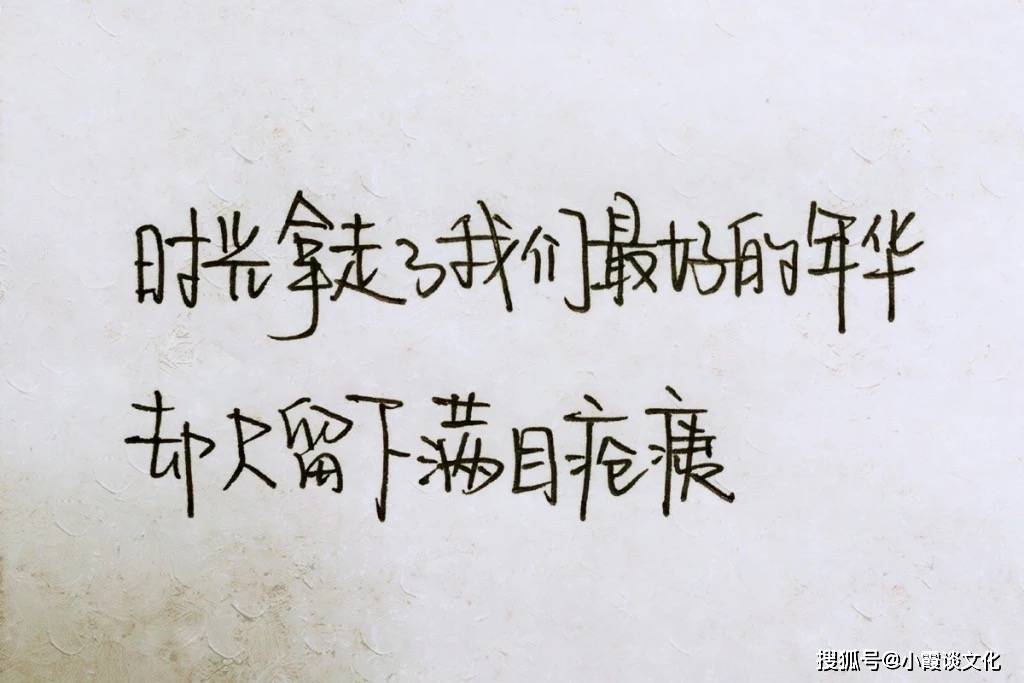 时光拿走了我们最好的年华
却只留下满目疮痍
搜狐号@小霞谈文化